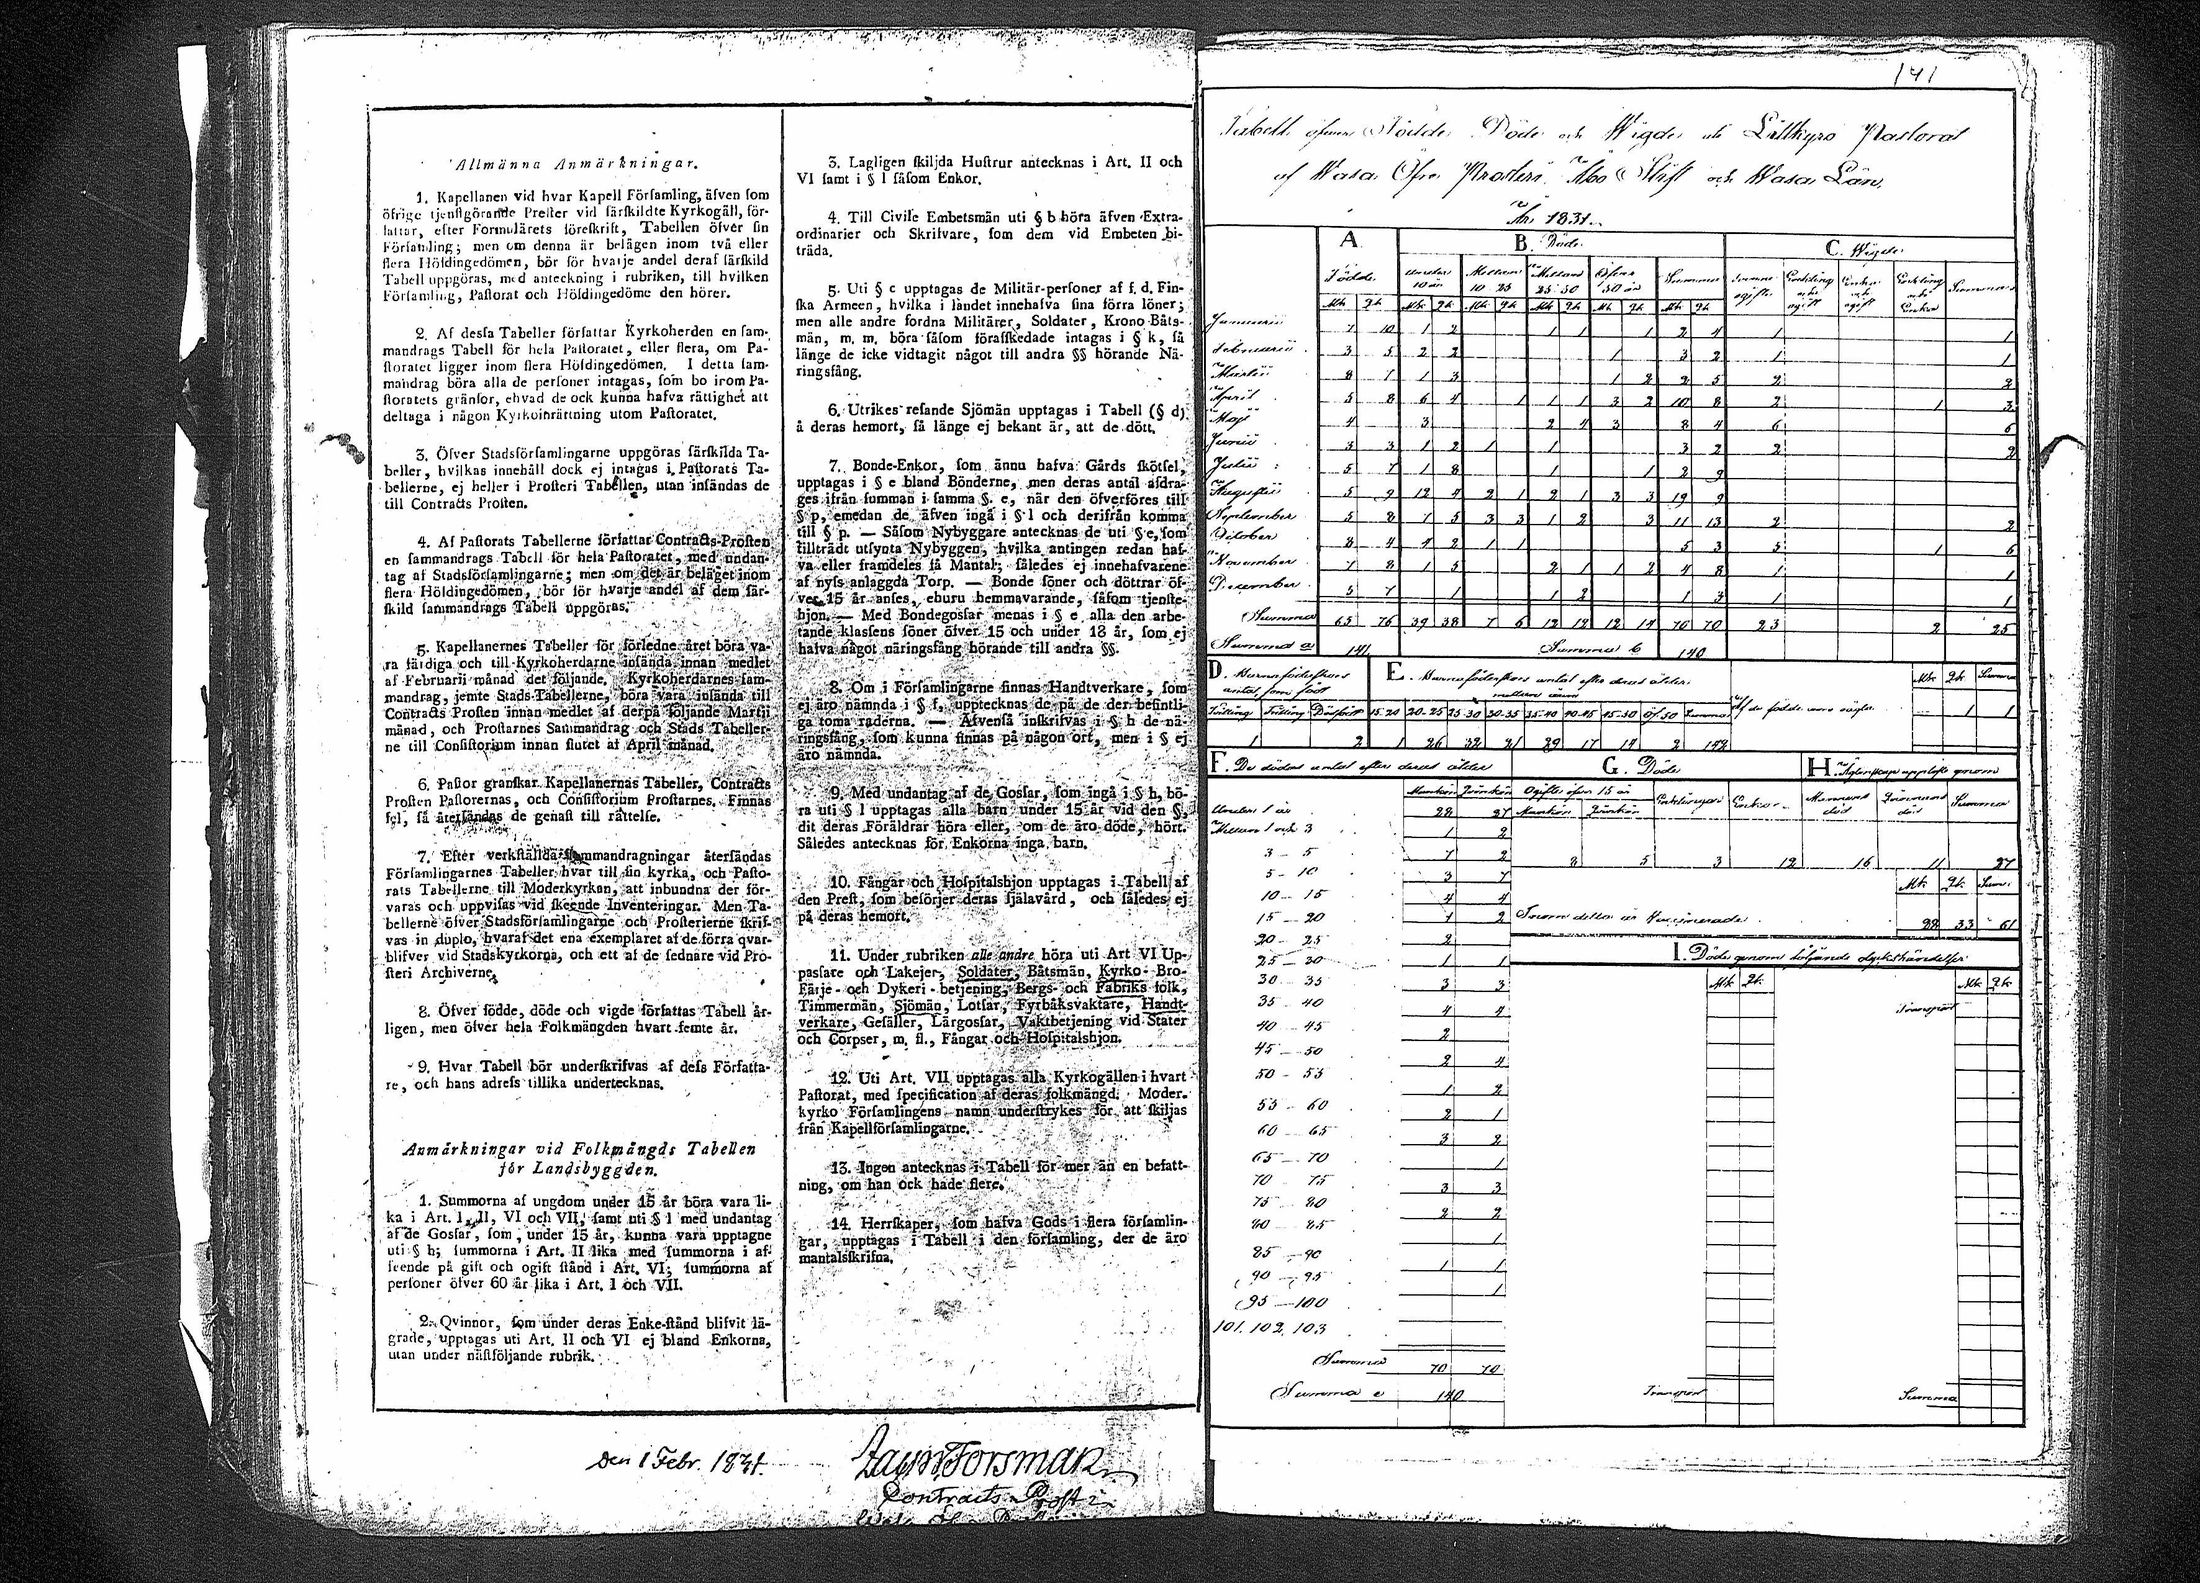 Allmänna Anmärkningar.
1. Kapellanen vid hvar Kapell Församling, äfven som
öfrige tjenstgörande Prester vid särskildte Kyrkogäll, för-
fattar, efter Formulärets föreskrift, Tabellen öfver sin
Församling; men om denna är belägen inom två eller
flera Höfdingedömen, bör för hvarje andel deraf särskild
Tabell uppgöras, med anteckning i rubriken, till hvilken
Församling, Pastorat och Höfdingedöme den hörer.
2. Af dessa Tabeller författar Kyrkoherden en sam-
mandrags Tabell för hela Pastoratet, eller flera, om Pa-
storatet ligger inom flera Höfdingedömen. I detta sam-
mandrag böra alla de personer intagas, som bo inom Pa-
storatets gränsor, ehvad de ock kunna hafva rättighet att
deltaga i någon Kyrkoinrättning utom Pastoratet.
3. Öfver Stadsförsamlingarne uppgöras särskilda Ta-
beller, hvilkas innehåll dock ej intagas i Pastorats Ta-
bellerne, ej heller i Prosteri Tabellen, utan insändas de
till Contracts Prosten.
4. Af Pastorats Tabellerne författar Contracts-Prosten
en sammandrags Tabell för hela Pastoratet, med undan-
tag af Stadsförsamlingarne; men om det är beläget inom
flera Höfdingedömen, bör för hvarje andel af dem sär-
skild sammandrags Tabell uppgöras.
5. Kapellanernes Tabeller för förledne året böra va-
ra färdiga och till Kyrkoherdarne insända innan medlet
af Februarii månad det följande. Kyrkoherdarnes sam-
mandrag, jemte Stads-Tabellerne, böra vara insända till
Contracts Prosten innan medlet af derpå följande Martii
månad, och Prostarnes Sammandrag och Stads Tabeller-
ne till Consistorium innan slutet af April månad.
6. Pastor granskar Kapellanernas Tabeller, Contracts
Prosten Pastorernas, och Consistorium Prostarnes. Finnas
fel, så återsändas de genast till rättelse.
7. Efter verkställda sammandragningar återsändas
Församlingarnes Tabeller hvar till sin kyrka, och Pasto-
rats Tabellerne till Moderkyrkan, att inbundna der för-
varas och uppvisas vid skeende Inventeringar. Men Ta-
bellerne öfver Stadsförsamlingarne och Prosterierne skrif-
vas in duplo, hvaraf det ena exemplaret af de förra qvar-
blifver vid Stadskyrkorna, och ett af de sednare vid Pro-
steri Archiverne.
8. Öfver födde, döde och vigde författas Tabell år-
ligen, men öfver hela Folkmängden hvart femte år.
9. Hvar Tabell bör underskrifvas af dess Författa-
re, och hans adress tillika undertecknas.
Anmärkningar vid Folkmängds Tabellen
för Landsbyggden.
1. Summorna af ungdom under 15 år böra vara li-
ka i Art. I, II, VI och VII, samt uti § l med undantag
af de Gossar, som, under 15 år, kunna vara upptagne
uti § h; summorna i Art. II lika med summorna i af-
seende på gift och ogift stånd i Art. VI; summorna af
personer öfver 60 år lika i Art. I och VII.
2. Qvinnor, som under deras Enke-stånd blifvit lä-
grade, upptagas uti Art. II och VI ej bland Enkorna,
utan under nästföljande rubrik.
3. Lagligen skiljda Hustrur antecknas i Art. II och
VI samt i § l såsom Enkor.
4. Till Civile Embetsmän uti § b höra äfven Extra-
ordinarier och Skrifvare, som dem vid Embeten bi-
träda.
5. Uti § c upptagas de Militär-personer af f. d. Fin-
ska Armeen, hvilka i landet innehafva sina förra löner;
men alle andre fordna Militärer, Soldater, Krono Båts-
män, m. m. böra såsom förafskedade intagas i § k, så
länge de icke vidtagit något till andra §§ hörande Nä-
ringsfång.
6. Utrikes resande Sjömän upptagas i Tabell (§ d)
å deras hemort, så länge ej bekant är, att de dött.
7. Bonde-Enkor, som ännu hafva Gårds skötsel,
upptagas i § e bland Bönderne, men deras antal afdra-
ges ifrån summan i samma §. e, när den öfverföres till
§ p, emedan de äfven ingå i § l och derifrån komma
till § p. — Såsom Nybyggare antecknas de uti § e, som
tillträdt utsynta Nybyggen, hvilka antingen redan haf-
va eller framdeles få Mantal; således ej innehafvarene
af nyss anlaggda Torp. — Bonde söner och döttrar öf-
ver 15 år anses, ehuru hemmavarande, såsom tjenste-
hjon. — Med Bondegossar menas i § e alla den arbe-
tande klassens söner öfver 15 och under 18 år, som ej
hafva något näringsfång hörande till andra §§.
8. Om i Församlingarne finnas Handtverkare, som
ej äro nämnda i § f, upptecknas de på de der befintli-
ga toma raderna. — Äfvenså inskrifvas i § h de nä-
ringsfång, som kunna finnas på någon ort, men i § ej
äro nämnda.
9. Med undantag af de Gossar, som ingå i § h, bö-
ra uti § l upptagas alla barn under 15 år vid den §,
dit deras Föräldrar höra eller, om de äro döde, hört.
Således antecknas för Enkorna inga barn.
10. Fångar och Hospitalshjon upptagas i Tabell af
den Prest, som besörjer deras själavård, och således ej
på deras hemort.
11. Under rubriken alle andre höra uti Art VI Up-
passare och Lakejer, Soldater, Båtsmän, Kyrko- Bro-
Färje- och Dykeri-betjening, Bergs- och Fabriks folk,
Timmermän, Sjömän, Lotsar, Fyrbåksvaktare, Handt-
verkare, Gesäller, Lärgossar, Vaktbetjening vid Stater
och Corpser, m. fl., Fångar och Hospitalshjon.
12. Uti Art. VII upptagas alla Kyrkogällen i hvart
Pastorat, med specification af deras folkmängd. Moder-
kyrko Församlingens namn understrykes för att skiljas
från Kapellförsamlingarne.
13. Ingen antecknas i Tabell för mer än en befatt-
ning, om han ock hade flere.
14. Herrskaper, som hafva Gods i flera församlin-
gar, upptagas i Tabell i den församling, der de äro
mantalsskrifna.
Den 1 Febr. 1831.
Forsman
Contracts Prost
141
Tabell öfver Födde Döde och Wigde uti Lillkyro Pastorat
af Wasa Öfre Prosteri Åbo Stift och Wasa Län.
År 1831.
A B. Döde C. Wigde
Födde Under 10 år Mellan 10 25 Mellan 25 50 Öfver 50 år Summa
Mk. Qk. Mk. Qk. Mk. Qk. Mk. Qk. Mk. Qk. Mk. Qk.
Januarii 7 10 1 2 1 1 1 2 4 1 1
Februarii 3 5 2 2 1 3 2 1 1
Martii 8 7 1 3 1 2 2 5 2 2
April 5 8 6 4 1 1 1 3 2 10 8 2 1 3
Maji 4 3 2 4 3 8 4 6 6
Junii 3 3 1 2 1 1 3 2 2 2
Julii 5 7 1 8 1 1 2 9
Augustii 5 9 12 4 2 1 2 1 3 3 19 9
September 5 8 7 5 3 3 1 2 3 11 13 2 2
October 8 4 4 2 1 1 5 3 5 1 6
November 7 8 1 5 2 1 1 2 4 8 1 1
December 5 7 1 1 2 1 3 1 1
Summa 65 76 39 38 7 6 12 12 12 14 70 70 23 2 25
Summa a 141 Summa b 140
D. Barnaföderskors antal, som födt
E. Barnaföderskors antal efter deras ålder
mellan åren
Mk. Qk. Summa
Tvilling Trilling Dödfödt 15-20 20-25 25-30 30-35 35-40 40-45 45-50 Öf. 50 Summa
1 2 1 26 32 21 29 17 14 2 142
1 1
F. De dödas antal efter deras ålder
G. Döde
H. Äktenskap upplöste genom
Mankön Qvinkön Ogifte öfver 15 år Enklingar Enkor Mannens död Qvinnans död Summa
Under 1 år 28 27 Mankön Qvinkön
Mellan 1 och 3 1 2
3 - 5 7 2 8 5 3 12 16 11 27
5 - 10 3 7
10 - 15 4 4 Mk. Qk. Sum.
15 - 20 1 2 Inom detta år Vaccinerade 28 33 61
20 - 25 2
25 - 30 1 1 I. Döde genom följande olyckshändelser
30 - 35 3 3 Mk. Qk. Mk. Qk.
35 - 40 4 4 Transport
40 - 45 2
45 - 50 2 4
50 - 55 1 2
55 - 60 2 1
60 - 65 3 2
65 - 70 1
70 - 75 3 3
75 - 80 2 2
80 - 85 1
85 - 90 1 1
90 - 95 1
95 - 100
101. 102. 103
Summa 70 70
Summa c 140 Transport Summa